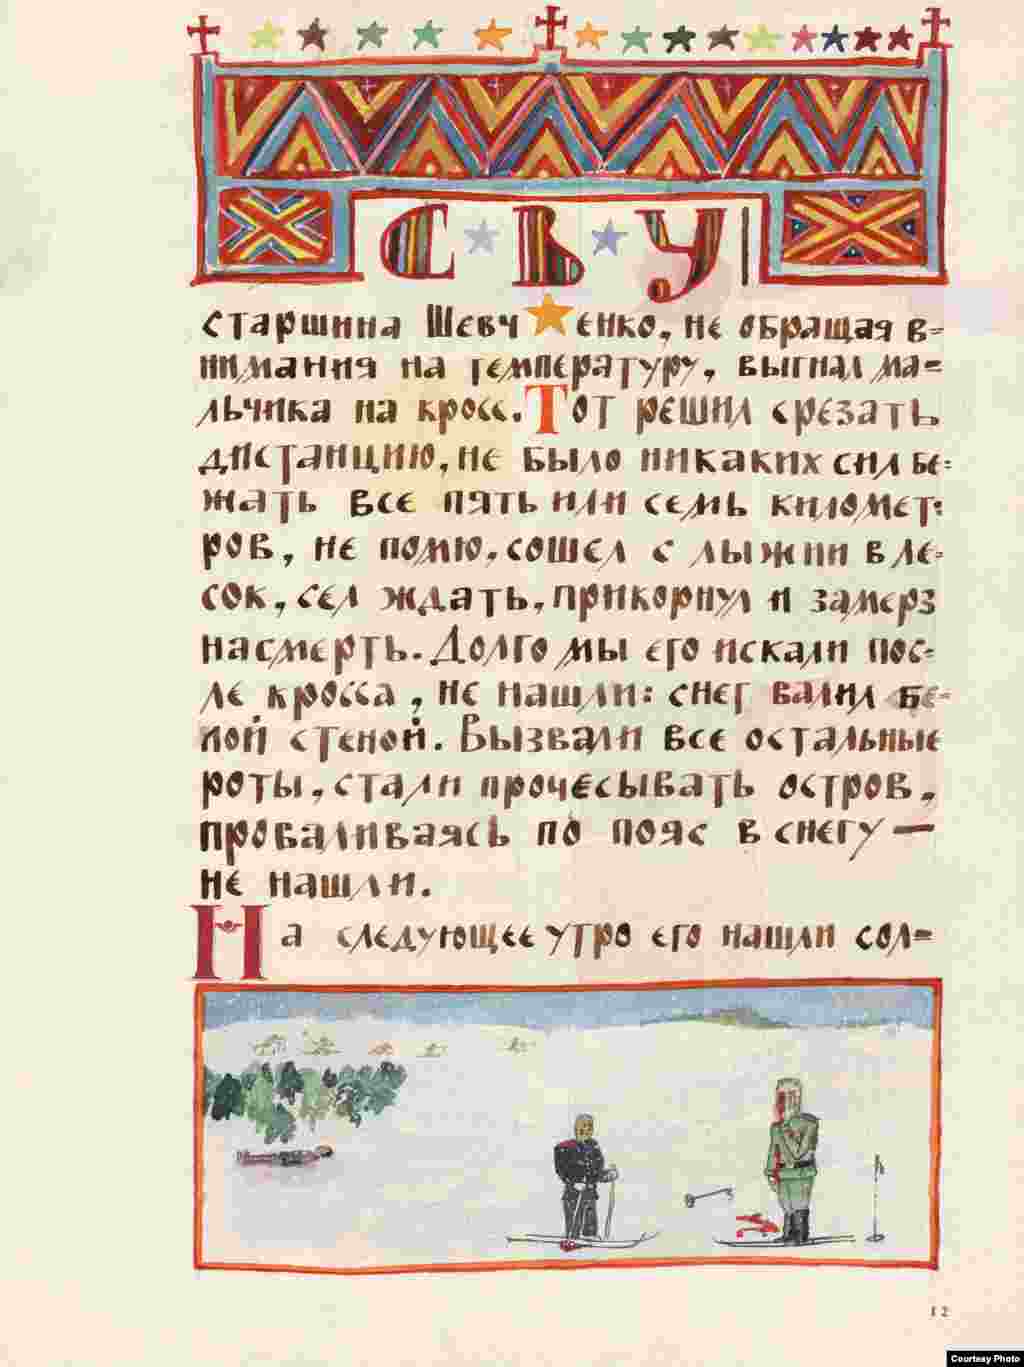 СВУ
старшина Шевченко, не обращая в=
нимания на температуру, выгнал ма=
льчика на кросс. Тот решил срезать
дистанцию, не было никаких сил бе=
жать все пять или семь километ=
ров, не помню. сошел с лыжни в ле=
сок, сел ждать, прикорнул и замерз
насмерть. Долго мы его искали пос=
ле кросса, не нашли: снег валил бе=
лой стеной. Вызвали все остальные
роты, стали прочесывать остров,
проваливаясь по пояс в снегу —
не нашли.
На следующее утро его нашли сол=
12
Courtesy Photo